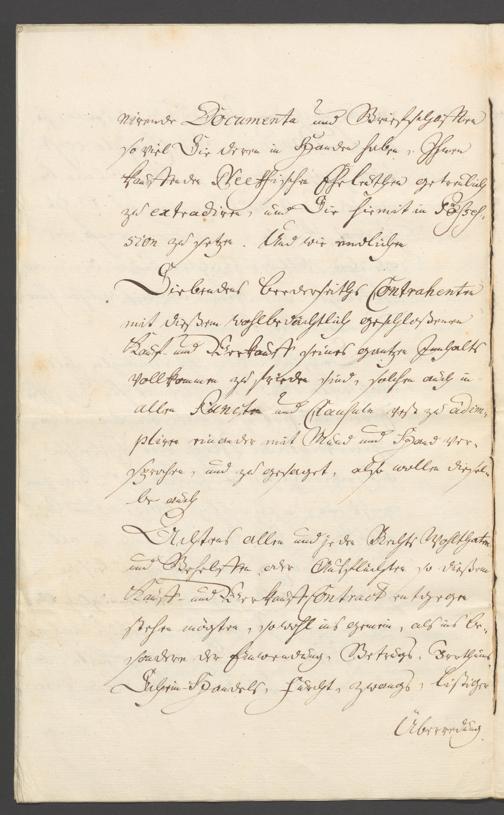 nirende Documenta und Briefschafften
so viel Sie deren in Handen haben, Ihnen
kauffenden Neeffischen Eheleuthen getreulich
zu extradiren, und Sie hiemit in Posses-
sion zu setzen. Und wie endlichen
Siebendens beederseiths Contrahenten
mit dießem wohlbedächtlich geschloßenen
Kauf und Verkauff seines gantzen Innhalts
vollkommen zu frieden sind, solchen auch in
allen Puncten und Clausuln vest zu adim-
pliren einander mit Mund und Hand ver-
sprochen, und zu gesaget, also wollen diesel-
be auch
Achtens allen und jeden Rechts Wohlthaten
und Behelffen oder Ausflüchten so dießem
Kauff- und Verkauff Contract entgegen
stehen mögten, sowohl ins gemein, als ins be-
sondere der Einwendung, Betrugs, Irrthums
Schein-Handels, Furcht, zwangs, listiger
Überredung